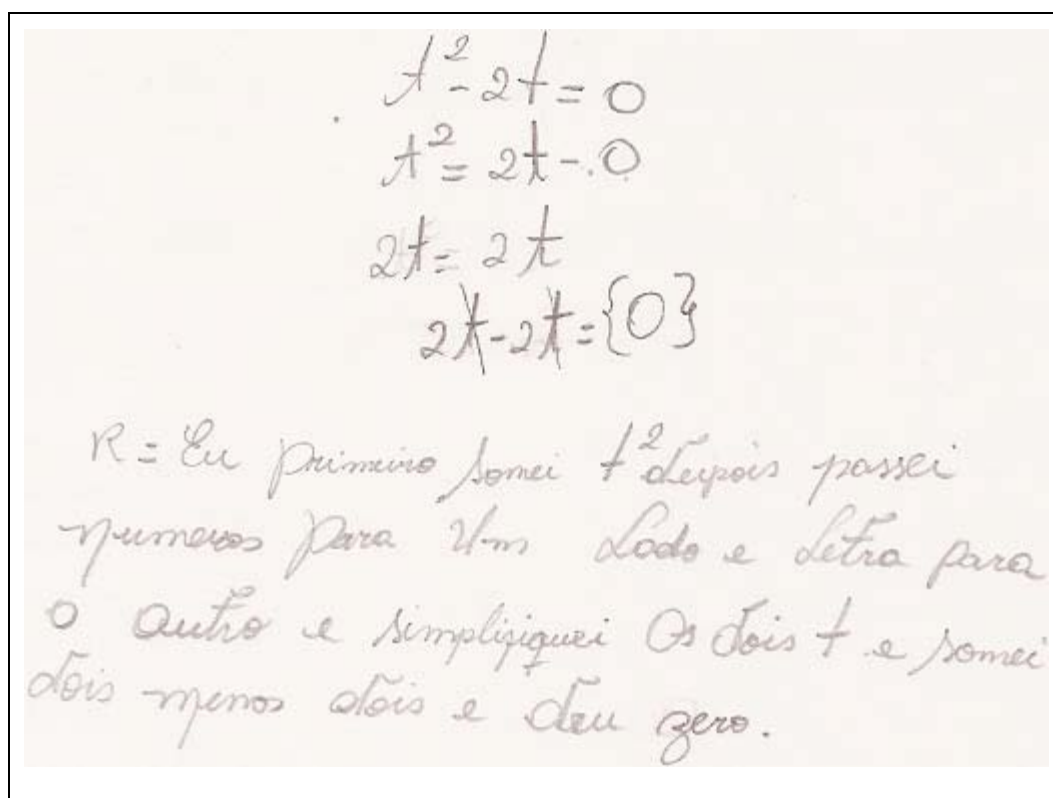 t² - 2t = 0
t² = 2t - 0
2t = 2t
2t - 2t = {0}
R = Eu primeiro somei t² depois passei
numeros para um lado e letra para
o outro e simplifiquei os dois t e somei
dois menos dois e deu zero.